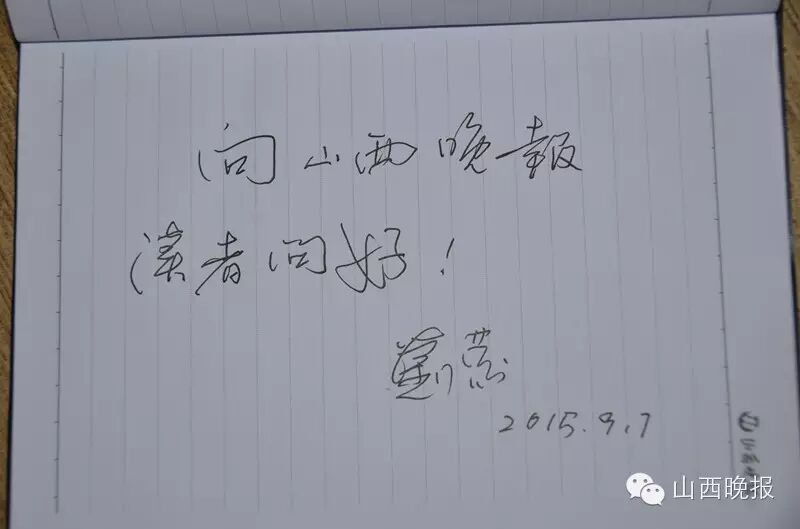 向山西晚報
读者问好！
2015.9.7
山西晚报